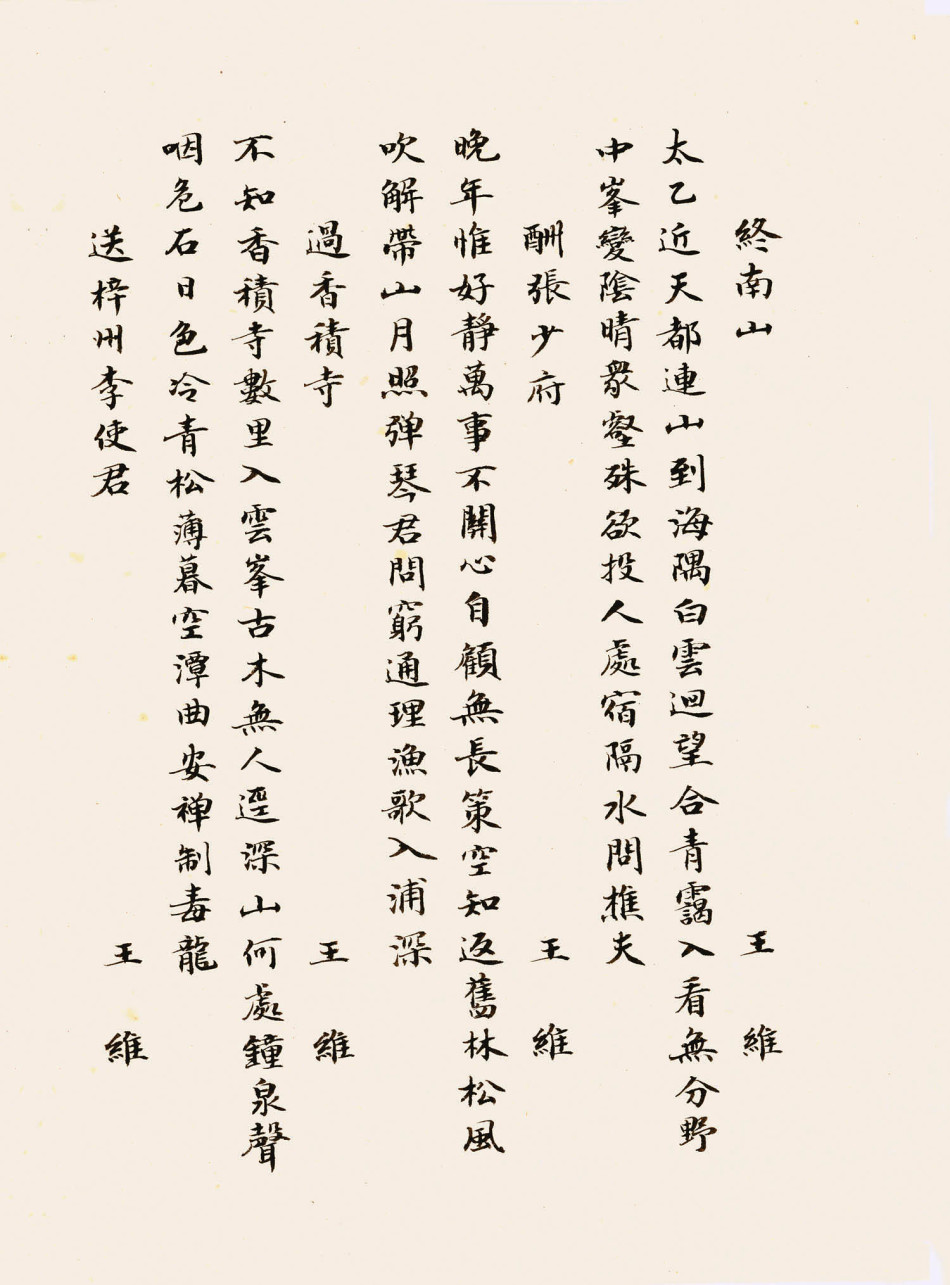 終南山 王維
太乙近天都連山到海隅白雲迴望合青靄入看無分野
中峯變陰晴衆壑殊欲投人處宿隔水問樵夫
酬張少府 王維
晚年惟好靜萬事不關心自顧無長策空知返舊林松風
吹解帶山月照弹琴君問窮通理漁歌入浦深
過香積寺 王維
不知香積寺數里入雲峯古木無人逕深山何處鐘泉聲
咽危石日色冷青松薄暮空潭曲安禅制毒龍
送梓州李使君 王維